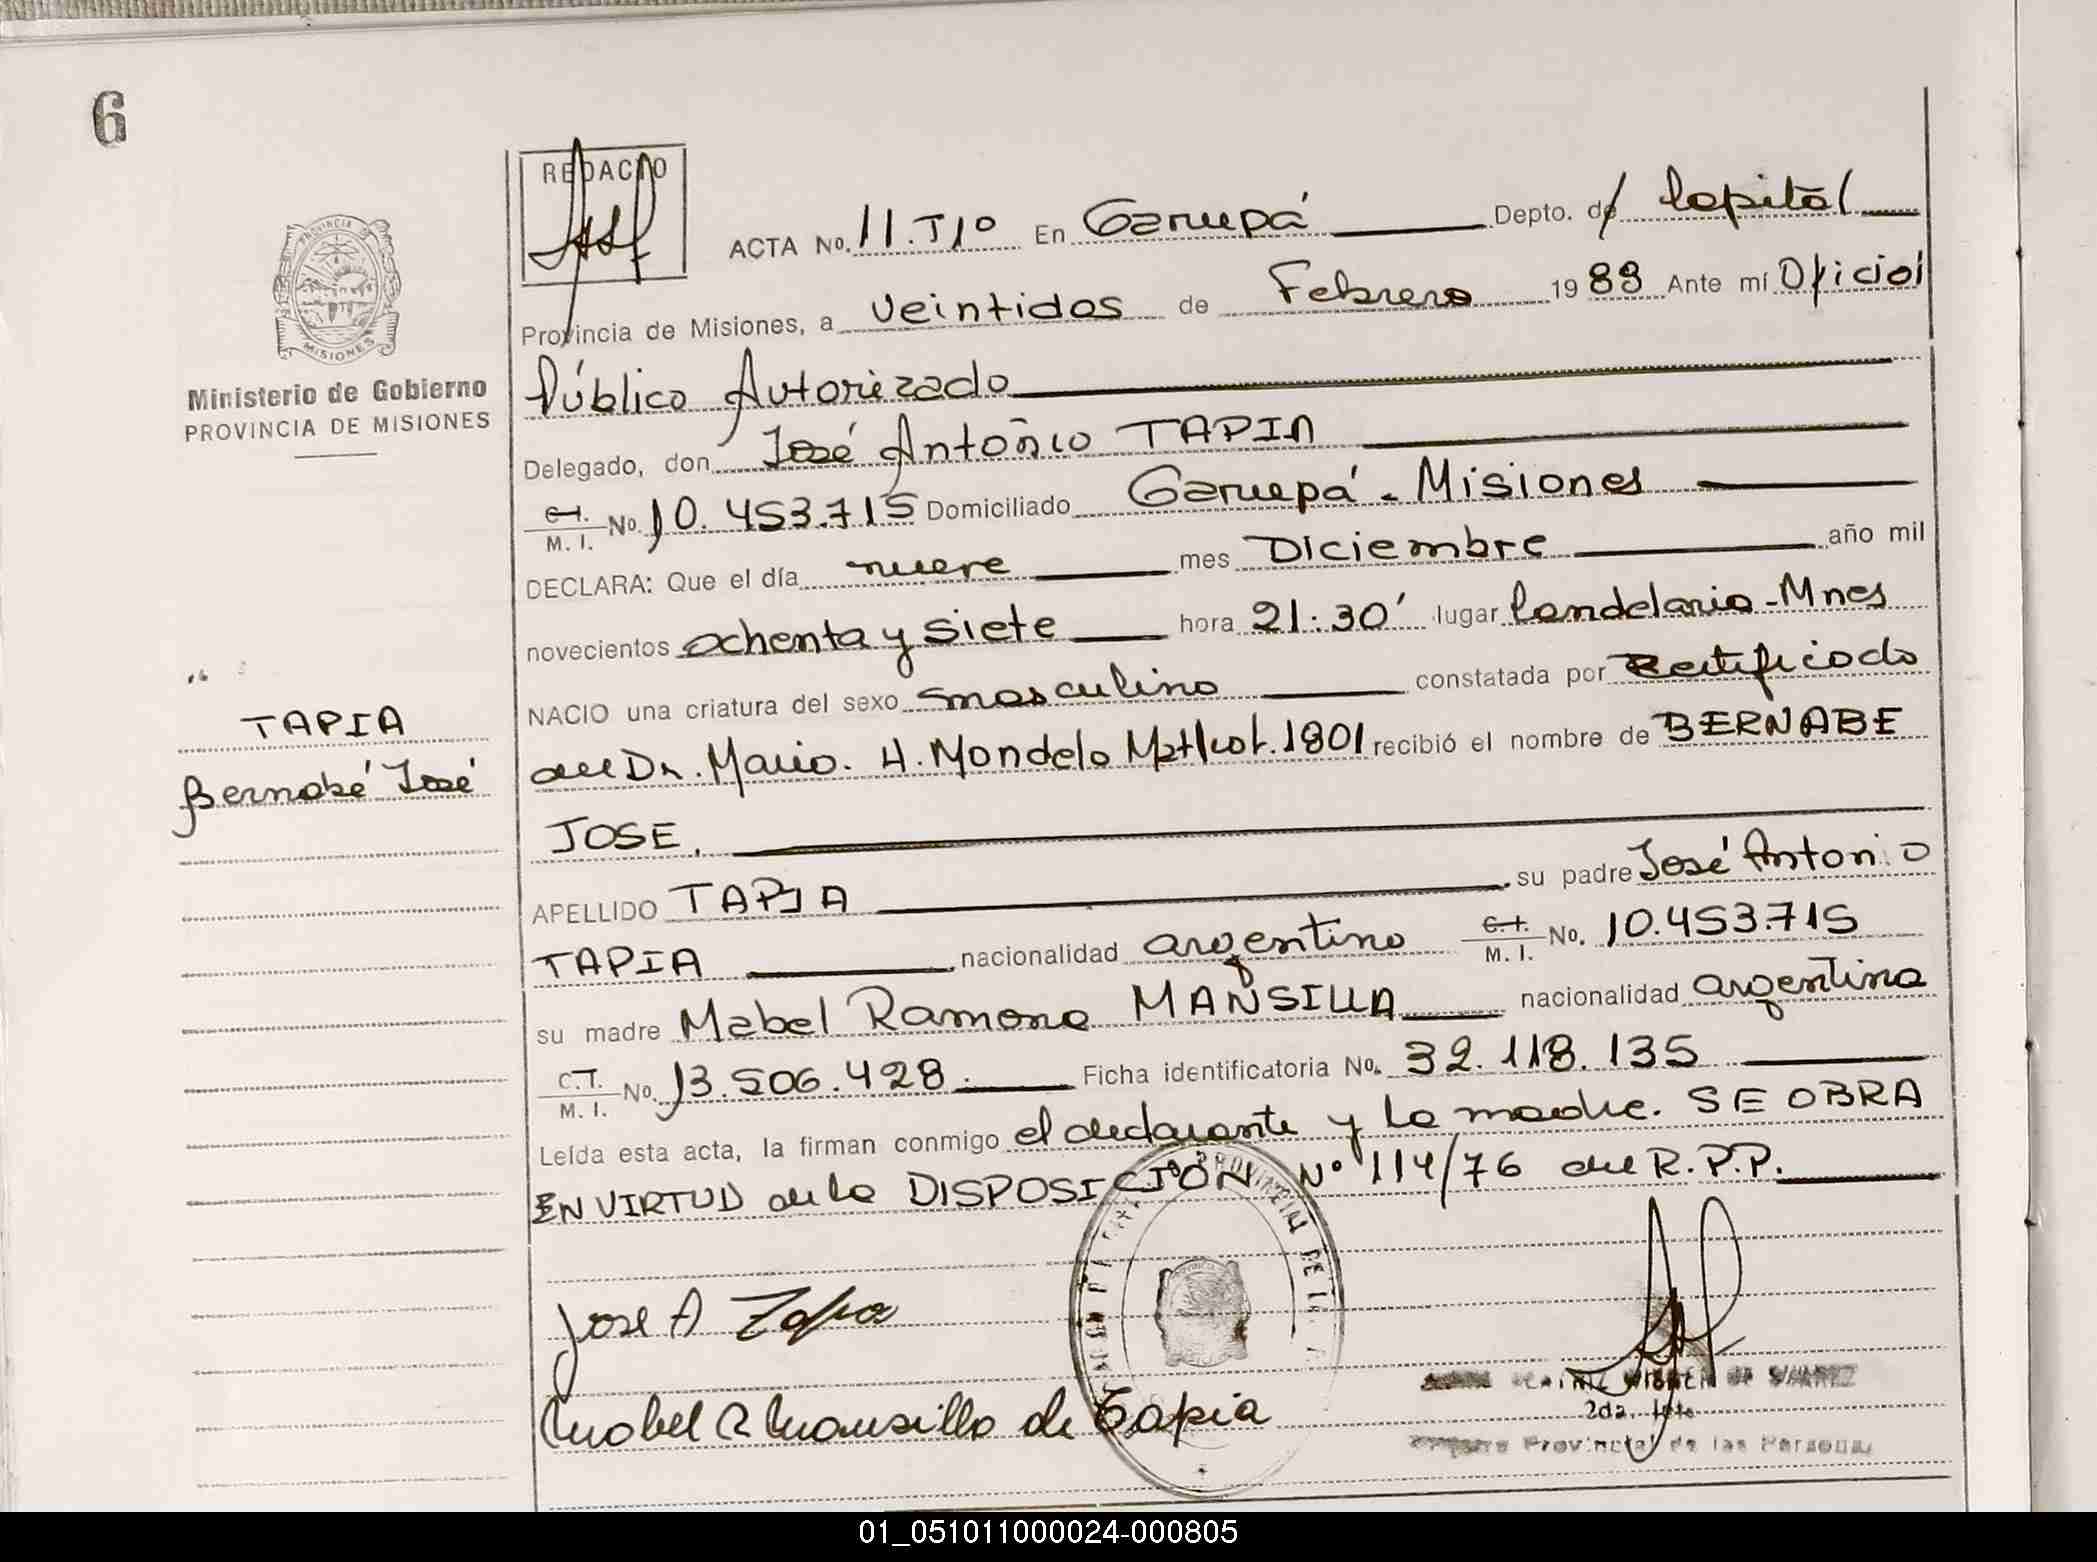 6
REDACTO
ACTA No. 11.TIº En Garupá Depto. de Capital
Provincia de Misiones, a veintidos de Febrero 1988 Ante mí Oficial
Público Autorizado
Delegado, don José Antonio TAPIA
C.I. M. I. No. 10.453.715 Domiciliado Garupá - Misiones
DECLARA: Que el día nueve mes Diciembre año mil
novecientos ochenta y siete hora 21:30' lugar Candelaria - Mnes
NACIO una criatura del sexo masculino constatada por Certificado
del Dr. Mario. H. Mondelo 1801 recibió el nombre de BERNABE
JOSE.
APELLIDO TAPIA su padre José Antonio
TAPIA nacionalidad argentino C.I. M. I. No. 10.453.715
su madre Mabel Ramona MANSILLA nacionalidad argentina
C.I. M. I. No. 13.506.428. Ficha identificatoria No. 32.118.135
Leída esta acta, la firman conmigo el declarante y la madre. SE OBRA
EN VIRTUD de la DISPOSICIÓN Nº 114/76 del R.P.P.
Jose A Tapia
Mabel R Mansilla de Tapia
PROVINCIAL DE
2da.
Provincial de las Personas
PROVINCIA DE
MISIONES
Ministerio de Gobierno
PROVINCIA DE MISIONES
TAPIA
Bernabé José
01_051011000024-000805